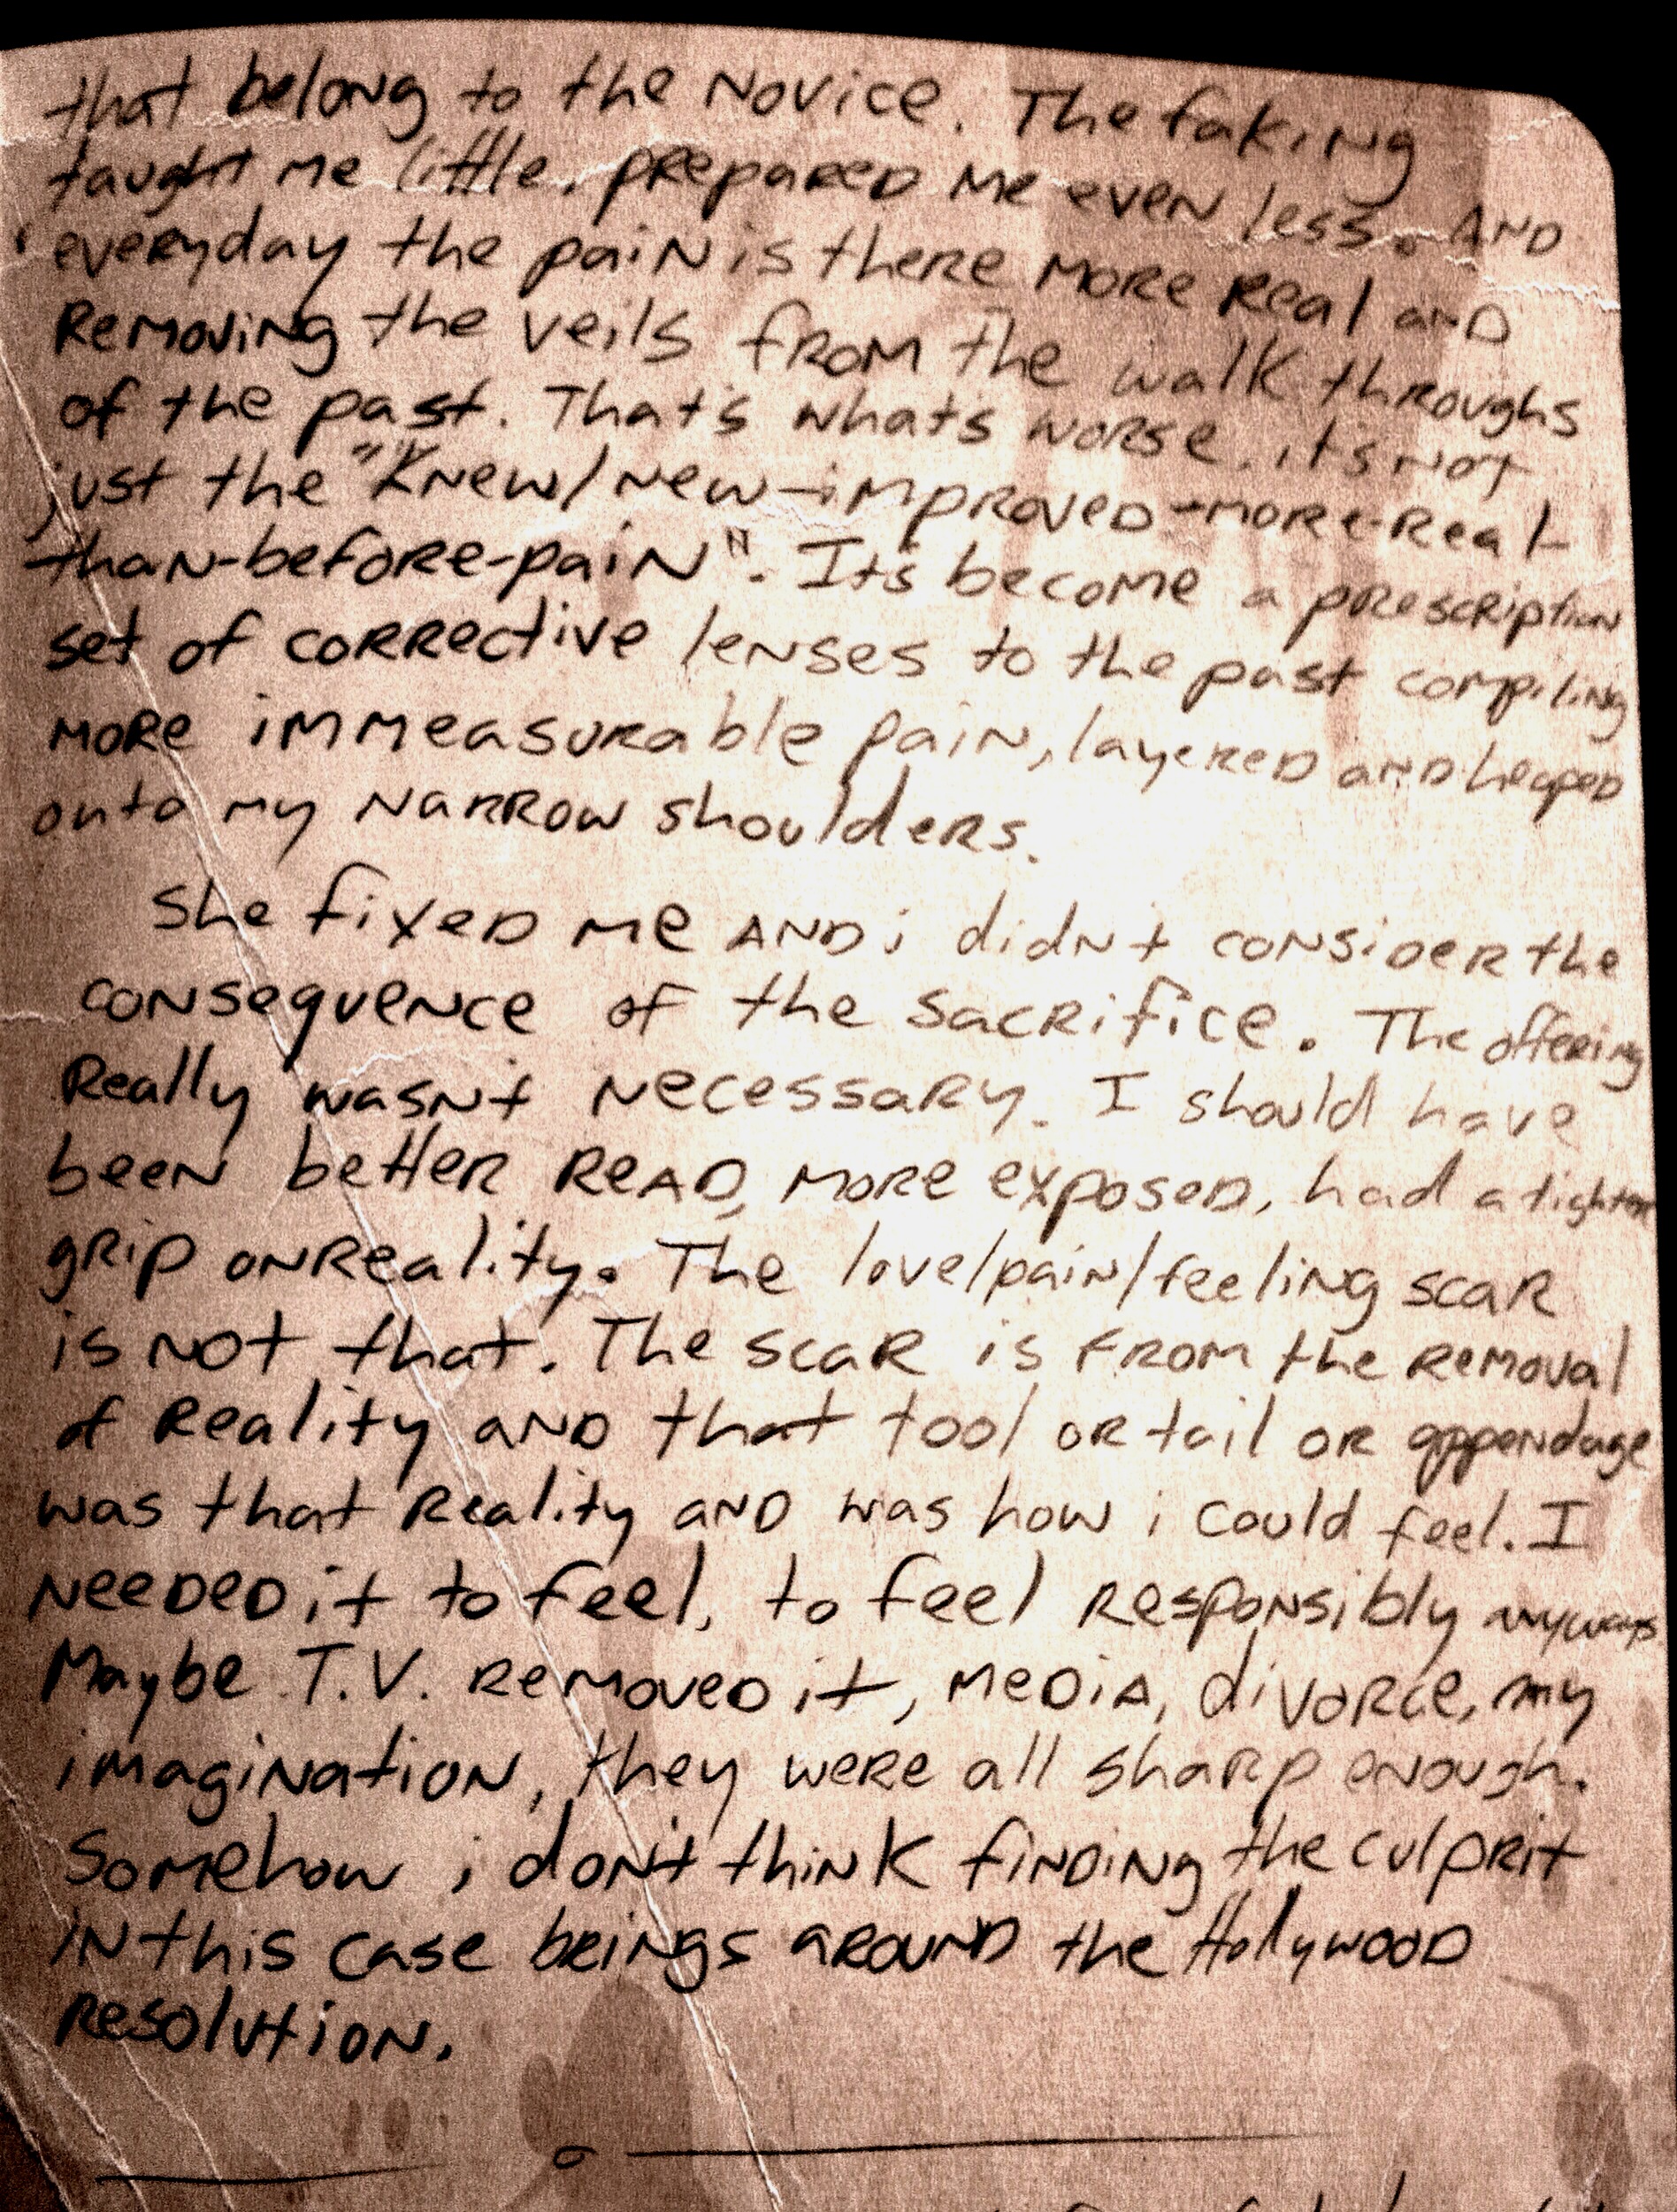 that belong to the Novice. The faking
taught me little, prepared me even less. AND
everyday the pain is there more real and
Removing the veils from the walk throughs
of the past. That's what's worse, it's not
just the "Knew/new-improved-more-real-
than-before-pain". It's become a prescription
set of corrective lenses to the past compiling
more immeasurable pain, layered and heaped
onto my narrow shoulders.
She fixed me AND i didn't consider the
consequence of the sacrifice. The offering
Really wasn't necessary. I should have
been better read, more exposed, had a tighter
grip on Reality. The love/pain/feeling scar
is not that. The scar is from the removal
of Reality and that tool or tail or appendage
was that Reality and was how i could feel. I
needed it to feel, to feel responsibly anyways
Maybe T.V. removed it, media, divorce, my
imagination, they were all sharp enough.
Somehow i don't think finding the culprit
in this case brings around the Hollywood
resolution.